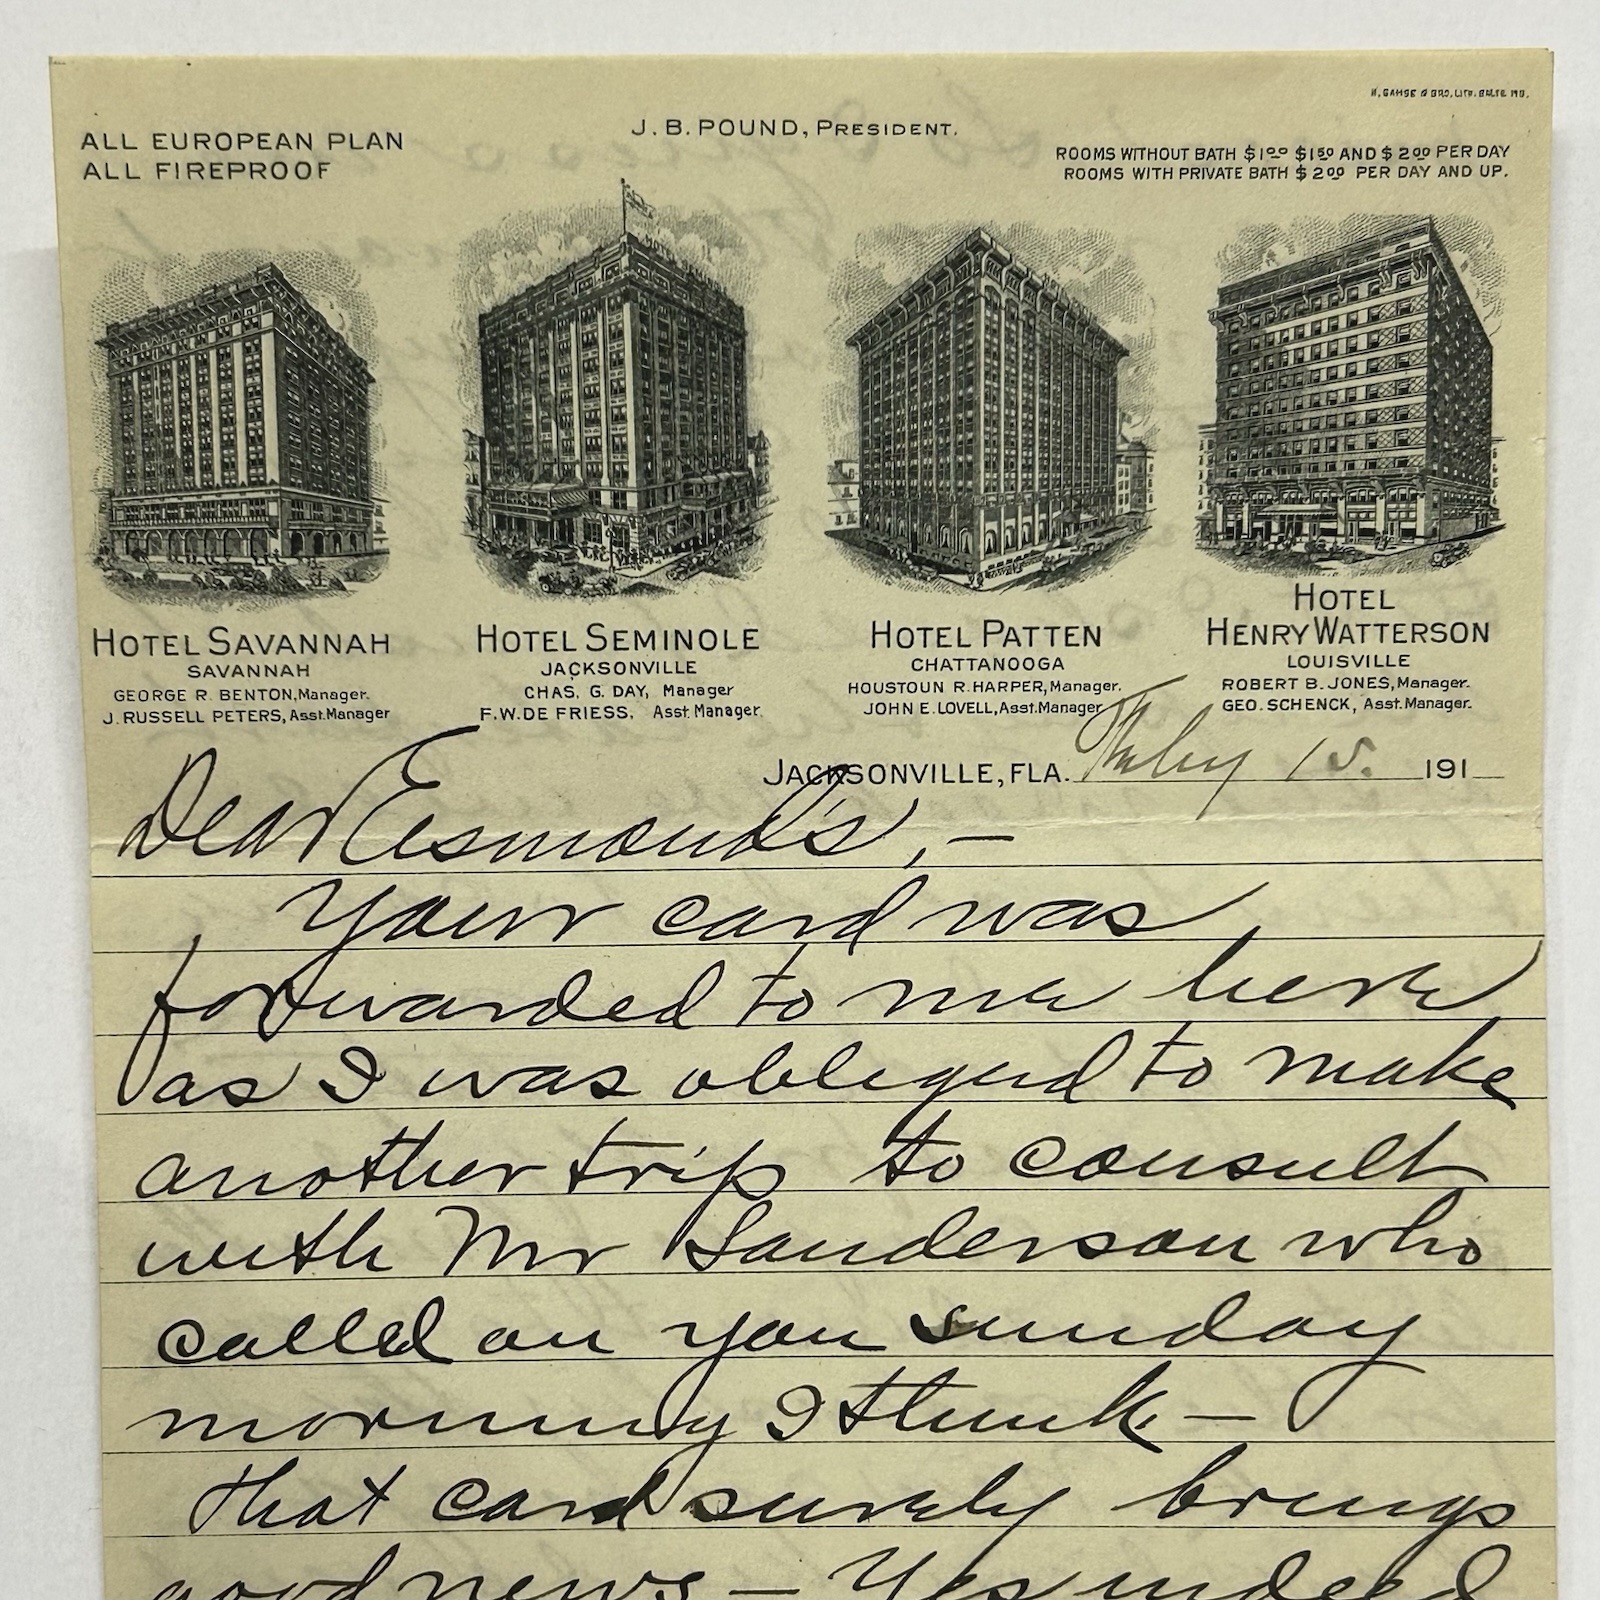 H. GAMSE & BRO. LITH. BALTO. MD.
J. B. POUND, PRESIDENT.
ALL EUROPEAN PLAN
ALL FIREPROOF
ROOMS WITHOUT BATH $1.00 $1.50 AND $2.00 PER DAY
ROOMS WITH PRIVATE BATH $2.00 PER DAY AND UP.
HOTEL SAVANNAH
SAVANNAH
GEORGE R. BENTON, Manager.
J. RUSSELL PETERS, Asst. Manager
HOTEL SEMINOLE
JACKSONVILLE
CHAS. G. DAY, Manager
F. W. DE FRIESS. Asst. Manager.
HOTEL PATTEN
CHATTANOOGA
HOUSTOUN R. HARPER, Manager.
JOHN E. LOVELL, Asst. Manager
HOTEL
HENRY WATTERSON
LOUISVILLE
ROBERT B. JONES, Manager.
GEO. SCHENCK, Asst. Manager.
JACKSONVILLE, FLA. 15. 191
Dear Esmond's, —
Your card was
forwarded to me here
as I was obliged to make
another trip to consult
with Mr Sanderson who
called on you Sunday
morning I think —
that card surely brings
good news — Yes indeed